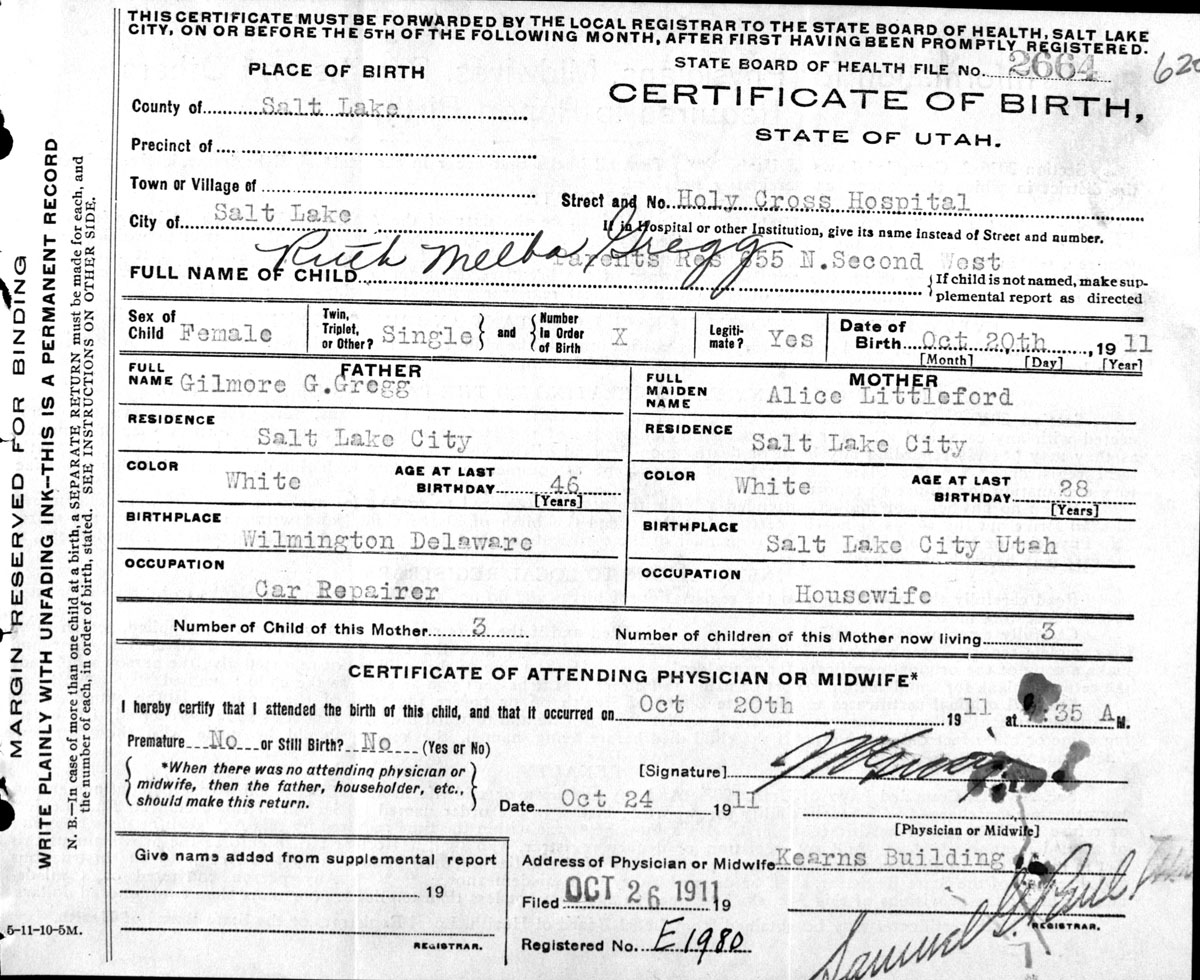 THIS CERTIFICATE MUST BE FORWARDED BY THE LOCAL REGISTRAR TO THE STATE BOARD OF HEALTH, SALT LAKE
CITY, ON OR BEFORE THE 5TH OF THE FOLLOWING MONTH, AFTER FIRST HAVING BEEN PROMPTLY REGISTERED.
PLACE OF BIRTH
STATE BOARD OF HEALTH FILE No. 2664
County of Salt Lake
CERTIFICATE OF BIRTH,
STATE OF UTAH.
Precinct of
Town or Village of
Street and No. Holy Cross Hospital
City of Salt Lake
If in Hospital or other Institution, give its name instead of Street and number.
Parents Res 655 N.Second West
FULL NAME OF CHILD Ruth Melba Gregg
If child is not named, make sup-
plemental report as directed
Sex of Child Female
Twin, Triplet, or Other? Single and Number In Order of Birth X
Legiti-mate? Yes
Date of Birth Oct 20th, 1911
[Month] [Day] [Year]
FATHER
FULL NAME Gilmore G.Gregg
MOTHER
FULL MAIDEN NAME Alice Littleford
RESIDENCE Salt Lake City
RESIDENCE Salt Lake City
COLOR White AGE AT LAST BIRTHDAY 46 [Years]
COLOR White AGE AT LAST BIRTHDAY 28 [Years]
BIRTHPLACE Wilmington Delaware
BIRTHPLACE Salt Lake City Utah
OCCUPATION Car Repairer
OCCUPATION Housewife
Number of Child of this Mother 3
Number of children of this Mother now living 3
CERTIFICATE OF ATTENDING PHYSICIAN OR MIDWIFE*
I hereby certify that I attended the birth of this child, and that it occurred on Oct 20th 1911 at 35 A M.
Premature No or Still Birth? No (Yes or No)
*When there was no attending physician or
midwife, then the father, householder, etc.,
should make this return.
[Signature]
Date Oct 24 1911
[Physician or Midwife]
Give name added from supplemental report
19
REGISTRAR.
Address of Physician or Midwife Kearns Building
Filed OCT 26 1911 19
Samuel G. Paul.
REGISTRAR.
Registered No. E1980
5-11-10-5M.
MARGIN RESERVED FOR BINDING
WRITE PLAINLY WITH UNFADING INK—THIS IS A PERMANENT RECORD
N. B.—In case of more than one child at a birth, a SEPARATE RETURN must be made for each, and
the number of each, in order of birth, stated. SEE INSTRUCTIONS ON OTHER SIDE.